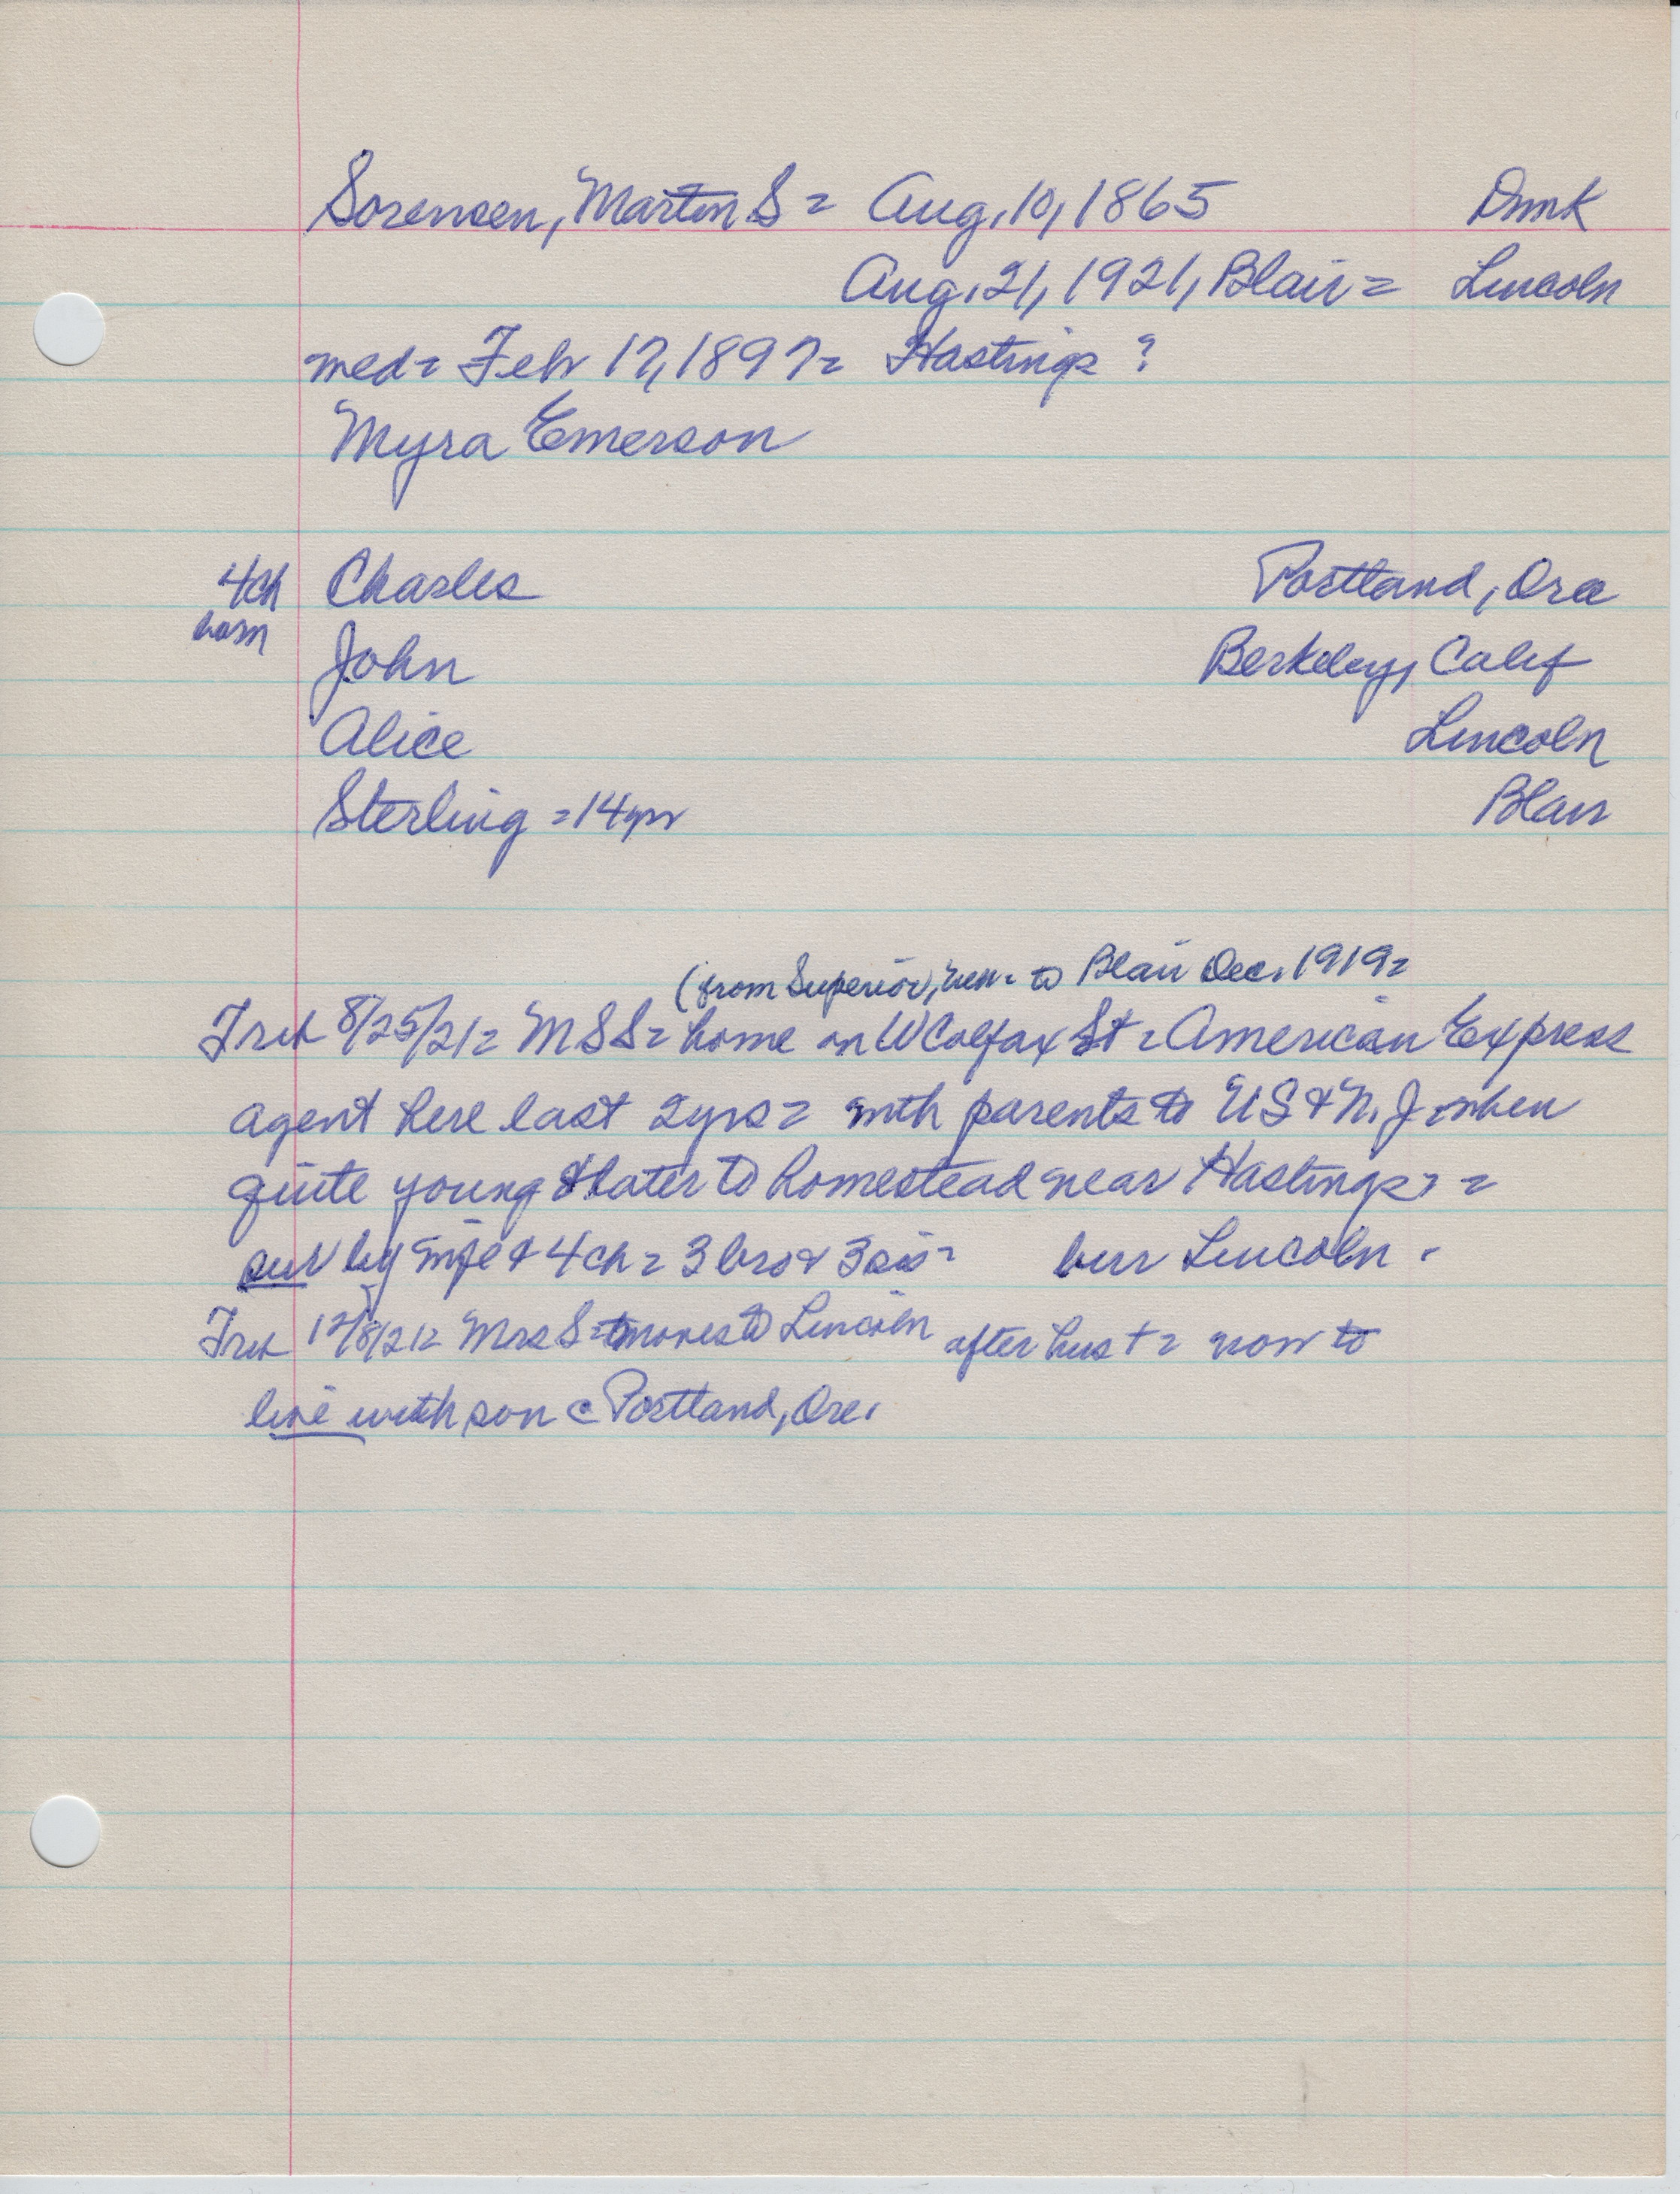 Sorensen, Martin S = Aug. 10, 1865 Dnmk
Aug. 21, 1921, Blair = Lincoln
med = Feb 17, 1897 = Hastings ?
Myra Emerson
4ch Charles Portland, Ore
born John Berkeley, Calif
Alice Lincoln
Sterling = 14yr Blair
(from Superior, = to Blair Dec. 1919 =
8/25/21 = MSS = home on W Colfax St = American Express
agent here last 2yrs = with parents to US & N. J. when
quite young & later to homestead near Hastings =
sur by wife & 4ch = 3 bro & 3 sis = bur Lincoln.
12/8/21 = Mrs S = moves to Lincoln after hus † = now to
live with son C Portland, Ore.